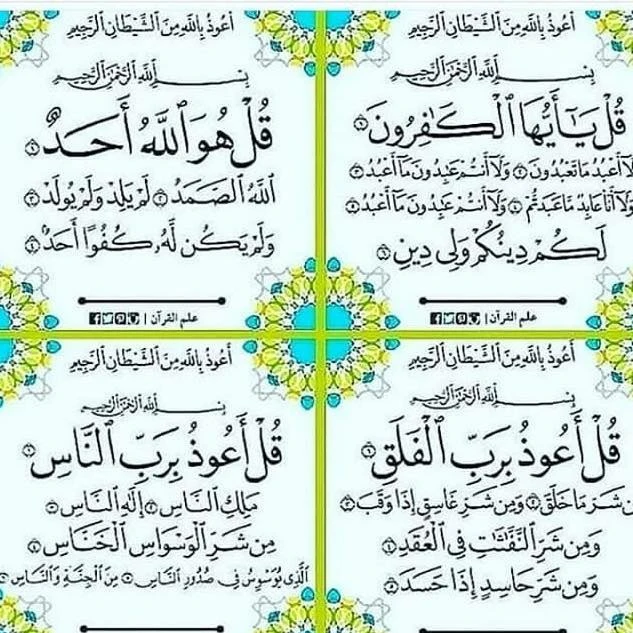 أَعُوذُ بِاللَّهِ مِنَ الشَّيْطَانِ الرَّجِيمِ
بِسْمِ ٱللَّهِ ٱلرَّحْمَٰنِ ٱلرَّحِيمِ
قُلْ يَـٰٓأَيُّهَا ٱلْكَـٰفِرُونَ ١
لَآ أَعْبُدُ مَا تَعْبُدُونَ ٢ وَلَآ أَنتُمْ عَـٰبِدُونَ مَآ أَعْبُدُ ٣
وَلَآ أَنَا۠ عَابِدٌ مَّا عَبَدتُّمْ ٤ وَلَآ أَنتُمْ عَـٰبِدُونَ مَآ أَعْبُدُ ٥
لَكُمْ دِينُكُمْ وَلِىَ دِينِ ٦
علم القرآن |
أَعُوذُ بِاللَّهِ مِنَ الشَّيْطَانِ الرَّجِيمِ
بِسْمِ ٱللَّهِ ٱلرَّحْمَٰنِ ٱلرَّحِيمِ
قُلْ هُوَ ٱللَّهُ أَحَدٌ ١
ٱللَّهُ ٱلصَّمَدُ ٢ لَمْ يَلِدْ وَلَمْ يُولَدْ ٣
وَلَمْ يَكُن لَّهُۥ كُفُوًا أَحَدٌۢ ٤
علم القرآن |
أَعُوذُ بِاللَّهِ مِنَ الشَّيْطَانِ الرَّجِيمِ
بِسْمِ ٱللَّهِ ٱلرَّحْمَٰنِ ٱلرَّحِيمِ
قُلْ أَعُوذُ بِرَبِّ ٱلْفَلَقِ ١
مِن شَرِّ مَا خَلَقَ ٢ وَمِن شَرِّ غَاسِقٍ إِذَا وَقَبَ ٣
وَمِن شَرِّ ٱلنَّفَّـٰثَـٰتِ فِى ٱلْعُقَدِ ٤
وَمِن شَرِّ حَاسِدٍ إِذَا حَسَدَ ٥
أَعُوذُ بِاللَّهِ مِنَ الشَّيْطَانِ الرَّجِيمِ
بِسْمِ ٱللَّهِ ٱلرَّحْمَٰنِ ٱلرَّحِيمِ
قُلْ أَعُوذُ بِرَبِّ ٱلنَّاسِ ١
مَلِكِ ٱلنَّاسِ ٢ إِلَـٰهِ ٱلنَّاسِ ٣
مِن شَرِّ ٱلْوَسْوَاسِ ٱلْخَنَّاسِ ٤
ٱلَّذِى يُوَسْوِسُ فِى صُدُورِ ٱلنَّاسِ ٥ مِنَ ٱلْجِنَّةِ وَٱلنَّاسِ ٦